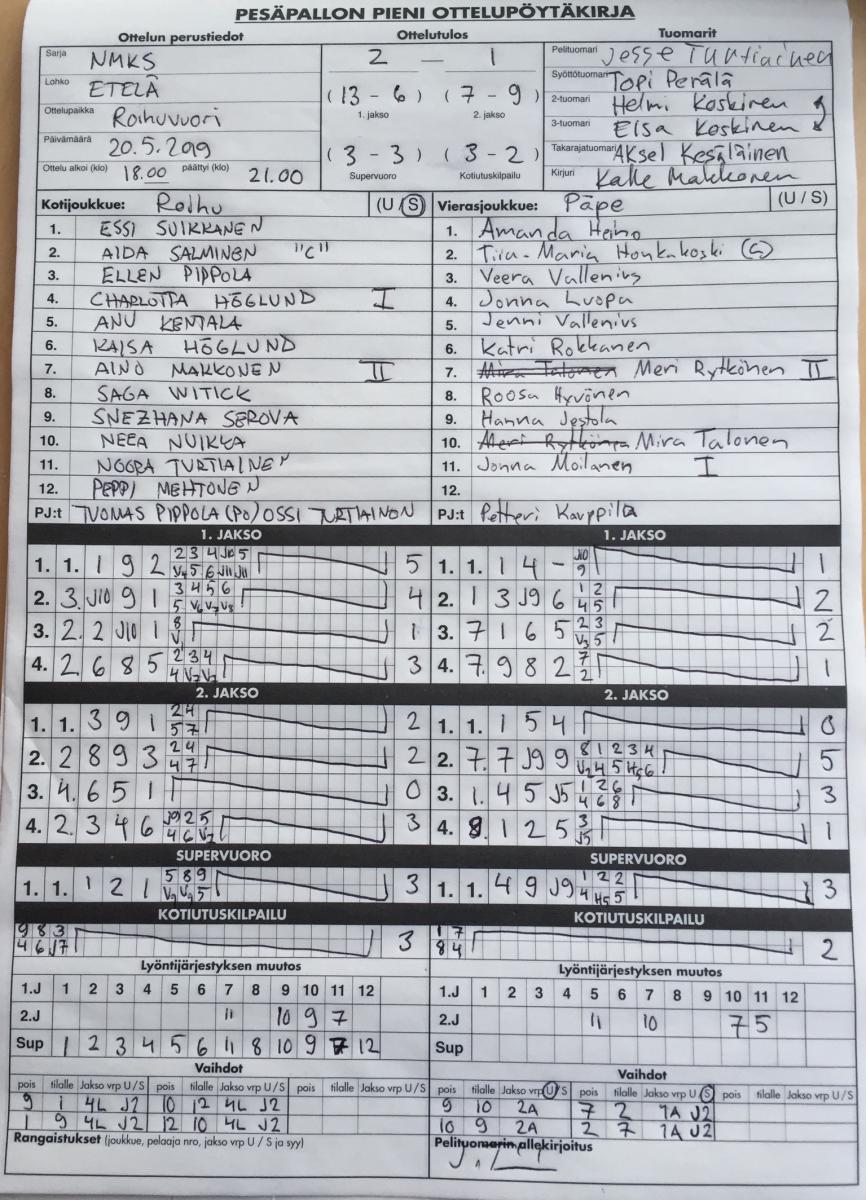 PESÄPALLON PIENI OTTELUPÖYTÄKIRJA
Ottelun perustiedot Ottelutulos Tuomarit
Sarja NMKS 2 — 1 Pelituomari Jesse Turtiainen
Lohko ETELÄ (13 - 6) (7 - 9) Syöttötuomari Topi Perälä
1. jakso 2. jakso 2-tuomari Helmi Koskinen
Ottelupaikka Roihuvuori 3-tuomari Elsa Koskinen
Päivämäärä 20.5.2019 (3 - 3) (3 - 2) Takarajatuomari Aksel Kesäläinen
Ottelu alkoi (klo) 18.00 päättyi (klo) 21.00 Supervuoro Kotiutuskilpailu Kirjuri Kalle Makkonen
Kotijoukkue: Roihu (U / S) Vierasjoukkue: Päpe (U / S)
1. ESSI SUIKKANEN 1. Amanda Heino
2. AIDA SALMINEN "C" 2. Tiia-Maria Honkakoski (C)
3. ELLEN PIPPOLA 3. Veera Vallenius
4. CHARLOTTA HÖGLUND I 4. Jonna Luopa
5. ANU KENTALA 5. Jenni Vallenius
6. KAISA HÖGLUND 6. Katri Rokkanen
7. AINO MAKKONEN II 7. Mira Talonen Meri Rytkönen II
8. SAGA WITICK 8. Roosa Hyvönen
9. SNEZHANA SEROVA 9. Hanna Jestola
10. NEEA NUIKKA 10. Meri Rytkönen Mira Talonen
11. NOORA TURTIAINEN 11. Jonna Moilanen I
12. PEPPI MEHTONEN 12.
PJ:t TUOMAS PIPPOLA (PO) OSSI TURTIAINON PJ:t Petteri Kauppila
1. JAKSO 1. JAKSO
1. 1. 1 9 2 2 3 4 J10 5 5 1. 1. 1 4 - J10 1
V4 5 6 J11 J11 9
2. 3. J10 9 1 3 4 5 6 4 2. 1 3 J9 6 1 2 2
5 V6 V7 V8 4 5
3. 2. 2 J10 1 8 1 3. 7 1 6 5 2 3 2
V1 V3 5
4. 2 6 8 5 2 3 4 3 4. 7. 9 8 2 7 1
4 V7 V7 2
2. JAKSO 2. JAKSO
1. 1. 3 9 1 2 4 2 1. 1. 1 5 4 0
5 7
2. 2 8 9 3 2 4 2 2. 7. 7 J9 9 8 1 2 3 4 5
4 7 V2 4 5 H5 6
3. 4. 6 5 1 0 3. 1. 4 5 J5 1 2 6 3
4 6 8
4. 2. 3 4 6 J9 2 5 3 4. 8. 1 2 5 3 1
4 6 V2 J5
SUPERVUORO SUPERVUORO
1. 1. 1 2 1 5 8 9 3 1. 1. 4 9 J9 1 2 2 3
V9 V9 5 4 H5 5
KOTIUTUSKILPAILU KOTIUTUSKILPAILU
9 8 3 3 1 7 2
4 6 J7 8 4
Lyöntijärjestyksen muutos Lyöntijärjestyksen muutos
1.J 1 2 3 4 5 6 7 8 9 10 11 12 1.J 1 2 3 4 5 6 7 8 9 10 11 12
2.J 11 10 9 7 2.J 11 10 7 5
Sup 1 2 3 4 5 6 11 8 10 9 7 12 Sup
Vaihdot Vaihdot
pois tilalle Jakso vrp U / S pois tilalle Jakso vrp U / S pois tilalle Jakso vrp U / S pois tilalle Jakso vrp U / S pois tilalle Jakso vrp U / S pois tilalle Jakso vrp U / S
9 1 4L J2 10 12 4L J2 9 10 2A 7 2 1A J2
1 9 4L J2 12 10 4L J2 10 9 2A 2 7 1A J2
Rangaistukset (joukkue, pelaaja nro, jakso vrp U / S ja syy) Pelituomarin allekirjoitus